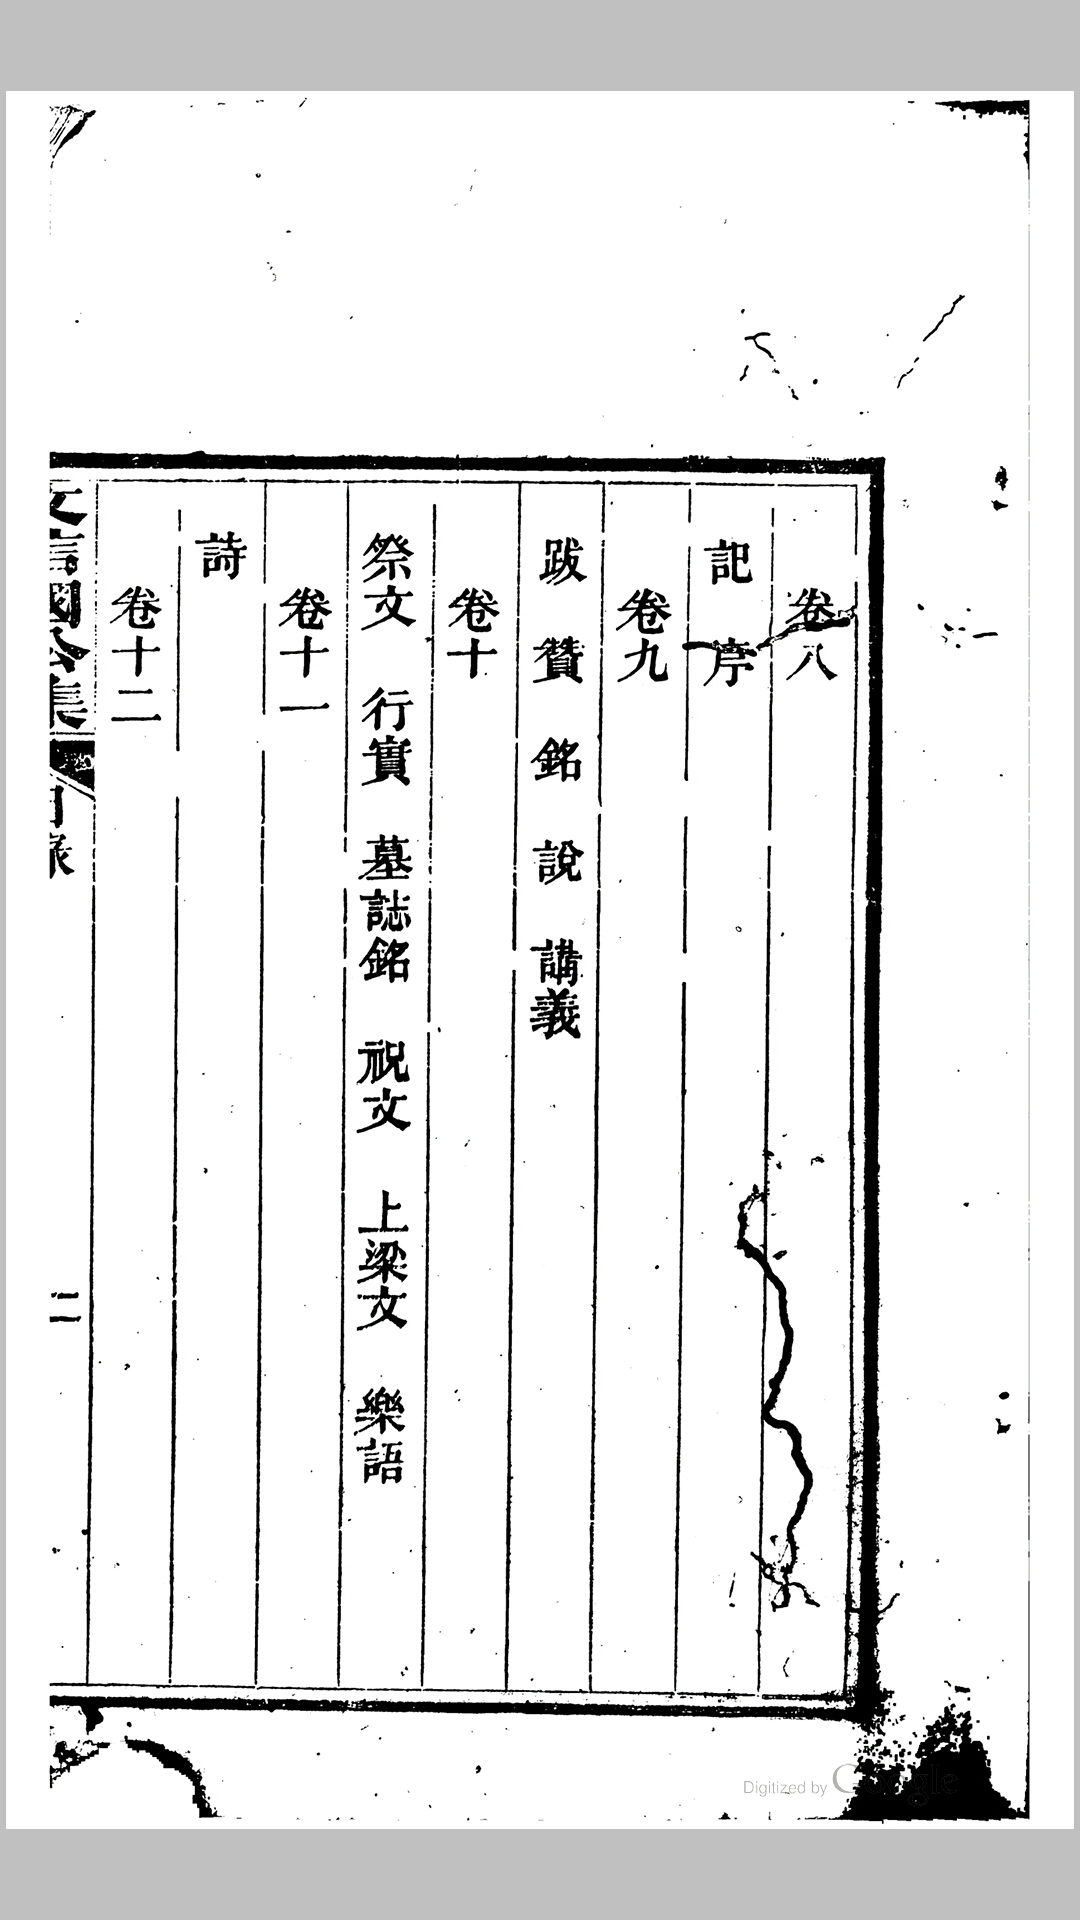 卷八
記　序
卷九
跋　贊　銘　說　講義
卷十
祭文　行實　墓誌銘　祝文　上梁文　樂語
卷十一
詩
卷十二
文信國公集　目錄　二
Digitized by Google